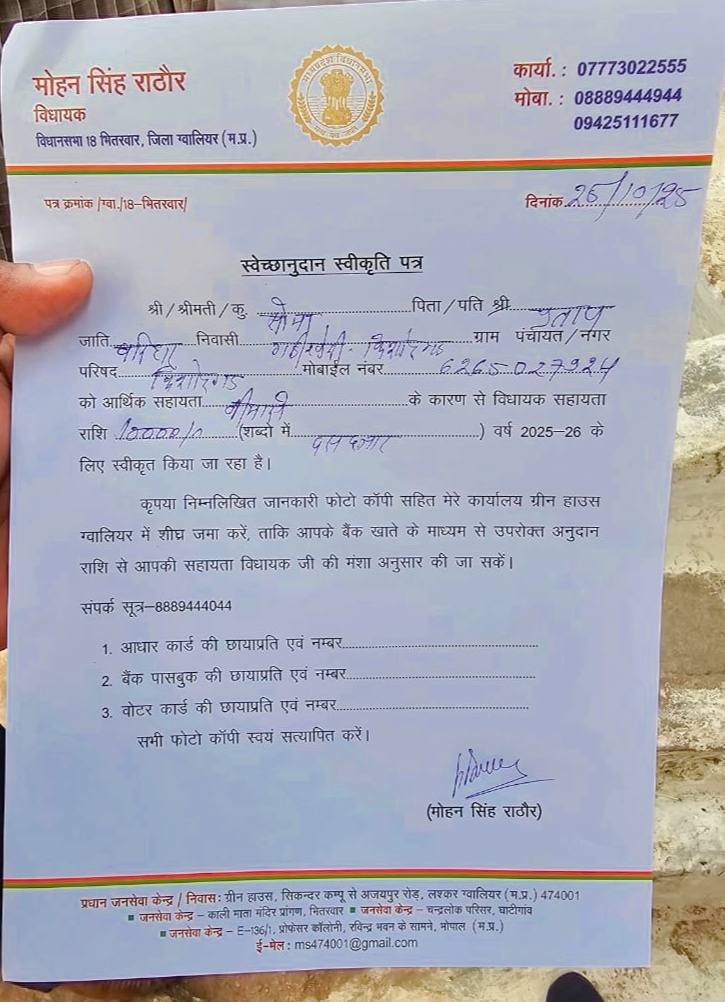 मोहन सिंह राठौर
विधायक
विधानसभा 18 भितरवार, जिला ग्वालियर (म.प्र.)
मध्यप्रदेश विधानसभा
सत्यमेव जयते
कार्या. : 07773022555
मोबा. : 08889444944
09425111677
पत्र क्रमांक /ग्वा./18-भितरवार/
दिनांक 25/10/25
स्वेच्छानुदान स्वीकृति पत्र
श्री/श्रीमती/कु. सोमा पिता/पति श्री प्रताप
जाति निवासी ग्राम पंचायत/नगर
परिषद मोबाईल नंबर 6265027924
को आर्थिक सहायता बीमारी के कारण से विधायक सहायता
राशि 10000/- (शब्दो में दस हजार ) वर्ष 2025-26 के
लिए स्वीकृत किया जा रहा है।
कृपया निम्नलिखित जानकारी फोटो कॉपी सहित मेरे कार्यालय ग्रीन हाउस
ग्वालियर में शीघ्र जमा करें, ताकि आपके बैंक खाते के माध्यम से उपरोक्त अनुदान
राशि से आपकी सहायता विधायक जी की मंशा अनुसार की जा सकें।
संपर्क सूत्र-8889444044
1. आधार कार्ड की छायाप्रति एवं नम्बर
2. बैंक पासबुक की छायाप्रति एवं नम्बर
3. वोटर कार्ड की छायाप्रति एवं नम्बर
सभी फोटो कॉपी स्वयं सत्यापित करें।
(मोहन सिंह राठौर)
प्रधान जनसेवा केन्द्र / निवास: ग्रीन हाउस, सिकन्दर कम्पू से अजयपुर रोड़, लश्कर ग्वालियर (म.प्र.) 474001
जनसेवा केन्द्र – काली माता मंदिर प्रांगण, भितरवार जनसेवा केन्द्र – चन्द्रलोक परिसर, घाटीगांव
जनसेवा केन्द्र – E-136/1, प्रोफेसर कॉलोनी, रविन्द्र भवन के सामने, भोपाल (म.प्र.)
ई-मेल : ms474001@gmail.com